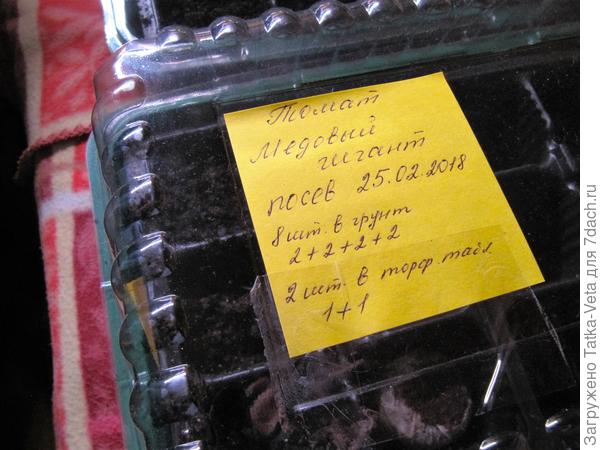 Томат
Медовый
гигант
посев 25.02.2018
8 шт. в грунт
2+2+2+2
2 шт. в торф. табл.
1+1
Загружено Tatka-Veta для 7dach.ru